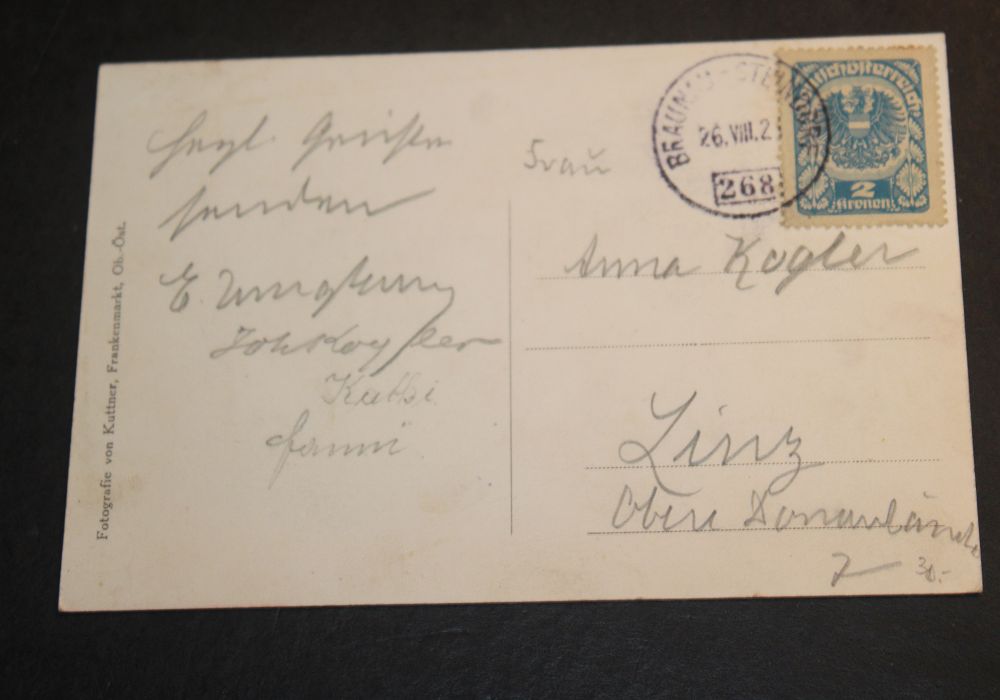 Herzl. Grüße
senden
E.
Joh Kogler
Kathi
Fanni
Fotografie von Kuttner, Frankenmarkt, Ob.-Öst.
BRAUNAU-
26.VIII.2
268
Deutschösterreich
2
Kronen
Frau
Anna Kogler
Linz
Obere Donaulände
7
30.-